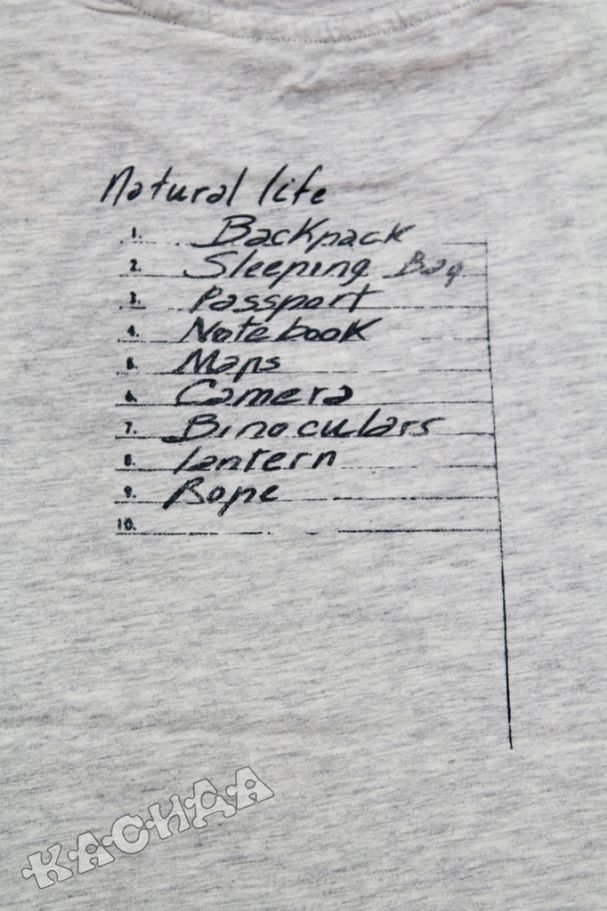 Natural life
1. Backpack
2. Sleeping Bag
3. Passport
4. Notebook
5. Maps
6. Camera
7. Binoculars
8. lantern
9. Rope
10.
КАСИДА